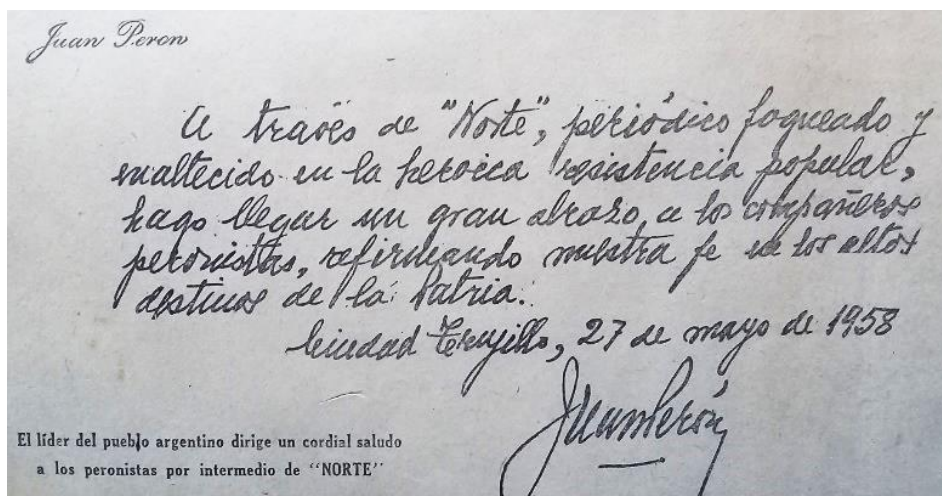 Juan Peron
A través de "Norte", periódico fogueado y
enaltecido en la heroica resistencia popular,
hago llegar un gran abrazo, a los compañeros
peronistas, refirmando nuestra fe en los altos
destinos de la Patria.
Ciudad Trujillo, 27 de mayo de 1958
Juan Perón
El líder del pueblo argentino dirige un cordial saludo
a los peronistas por intermedio de "NORTE"